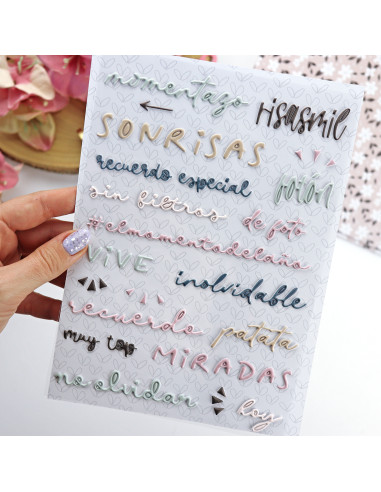 momentazo
risasmil
SONRISAS
recuerdo especial
sin filtros
de foto
#elmomentodelaño
VIVE
inolvidable
recuerdo
patata
muy top
MIRADAS
no olvidar
hoy